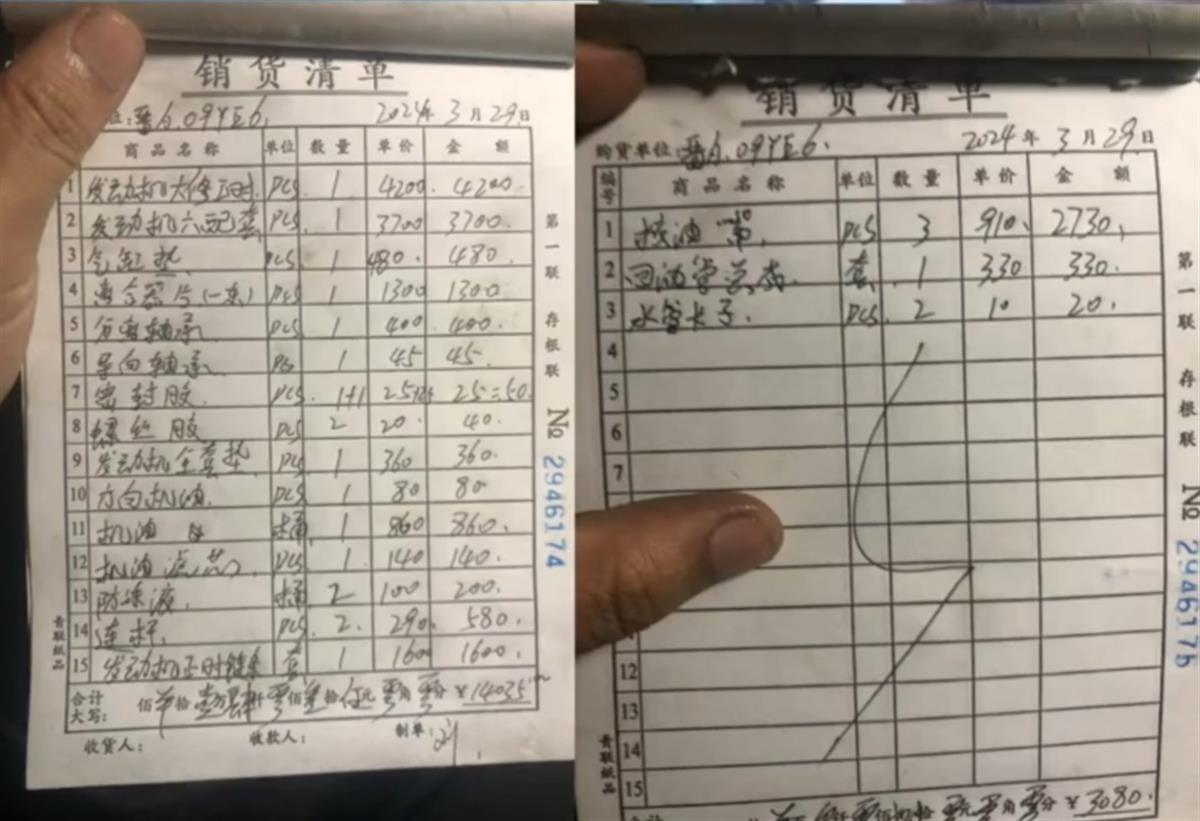 销货清单
位:晋A.09YE6. 2024年3月29日
商品名称 单位 数量 单价 金额
1 发动机大修工时. PCS. 1 4200. 4200
2 发动机六配套 PCS. 1 3700 3700.
3 气缸垫. PCS. 1 480. 480.
4 离合器片(一套) PCS 1 1300 1300
5 分离轴承 PCS 1 400. 400.
6 导向轴承 PCS 1 45 45.
7 密封胶. PCS. 1+1 25 25=50.
8 螺丝胶 PCS 2 20. 40.
9 发动机全套垫. PCS. 1 360. 360.
10 方向机油. PCS. 1 80 80
11 机油 桶. 1 860 860.
12 机油滤芯. PCS 1. 140 140.
13 防冻液. 桶. 2 100 200.
14 连杆. PCS. 2. 290. 580.
15 发动机正时链条 套. 1 1600 1600.
合计
大写: 佰 拾壹万肆仟零佰叁拾伍元零角零分 ¥14035
收货人: 收款人: 制单:刘
第一联 存根联 № 2946174
青联纸品
销货清单
购货单位:晋A.09YE6. 2024年3月29日
编号 商品名称 单位 数量 单价 金额
1 PCS 3 910. 2730.
2 回油管总成. 套. 1 330 330.
3 水管卡子. PCS. 2 10 20.
4
5
6
7
12
13
14
15
¥3080.
第一联 存根联 № 2946175
青联纸品